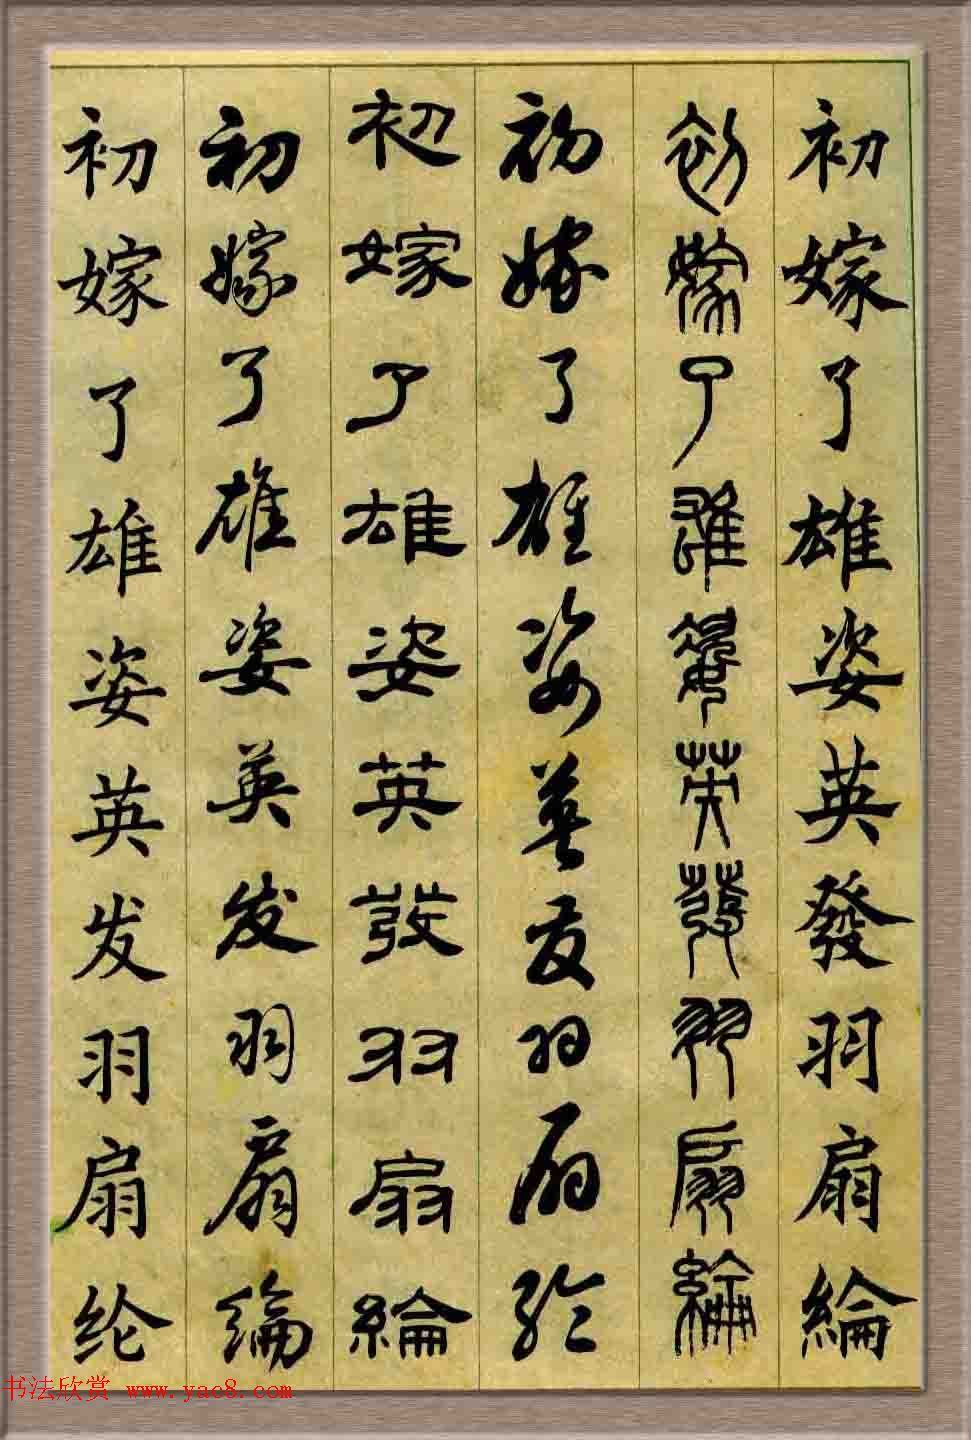 初嫁了雄姿英發羽扇綸
初嫁了雄姿英發羽扇綸
初嫁了雄姿英发羽扇纶
初嫁了雄姿英發羽扇綸
初嫁了雄姿英发羽扇綸
初嫁了雄姿英发羽扇纶
书法欣赏 www.yac8.com